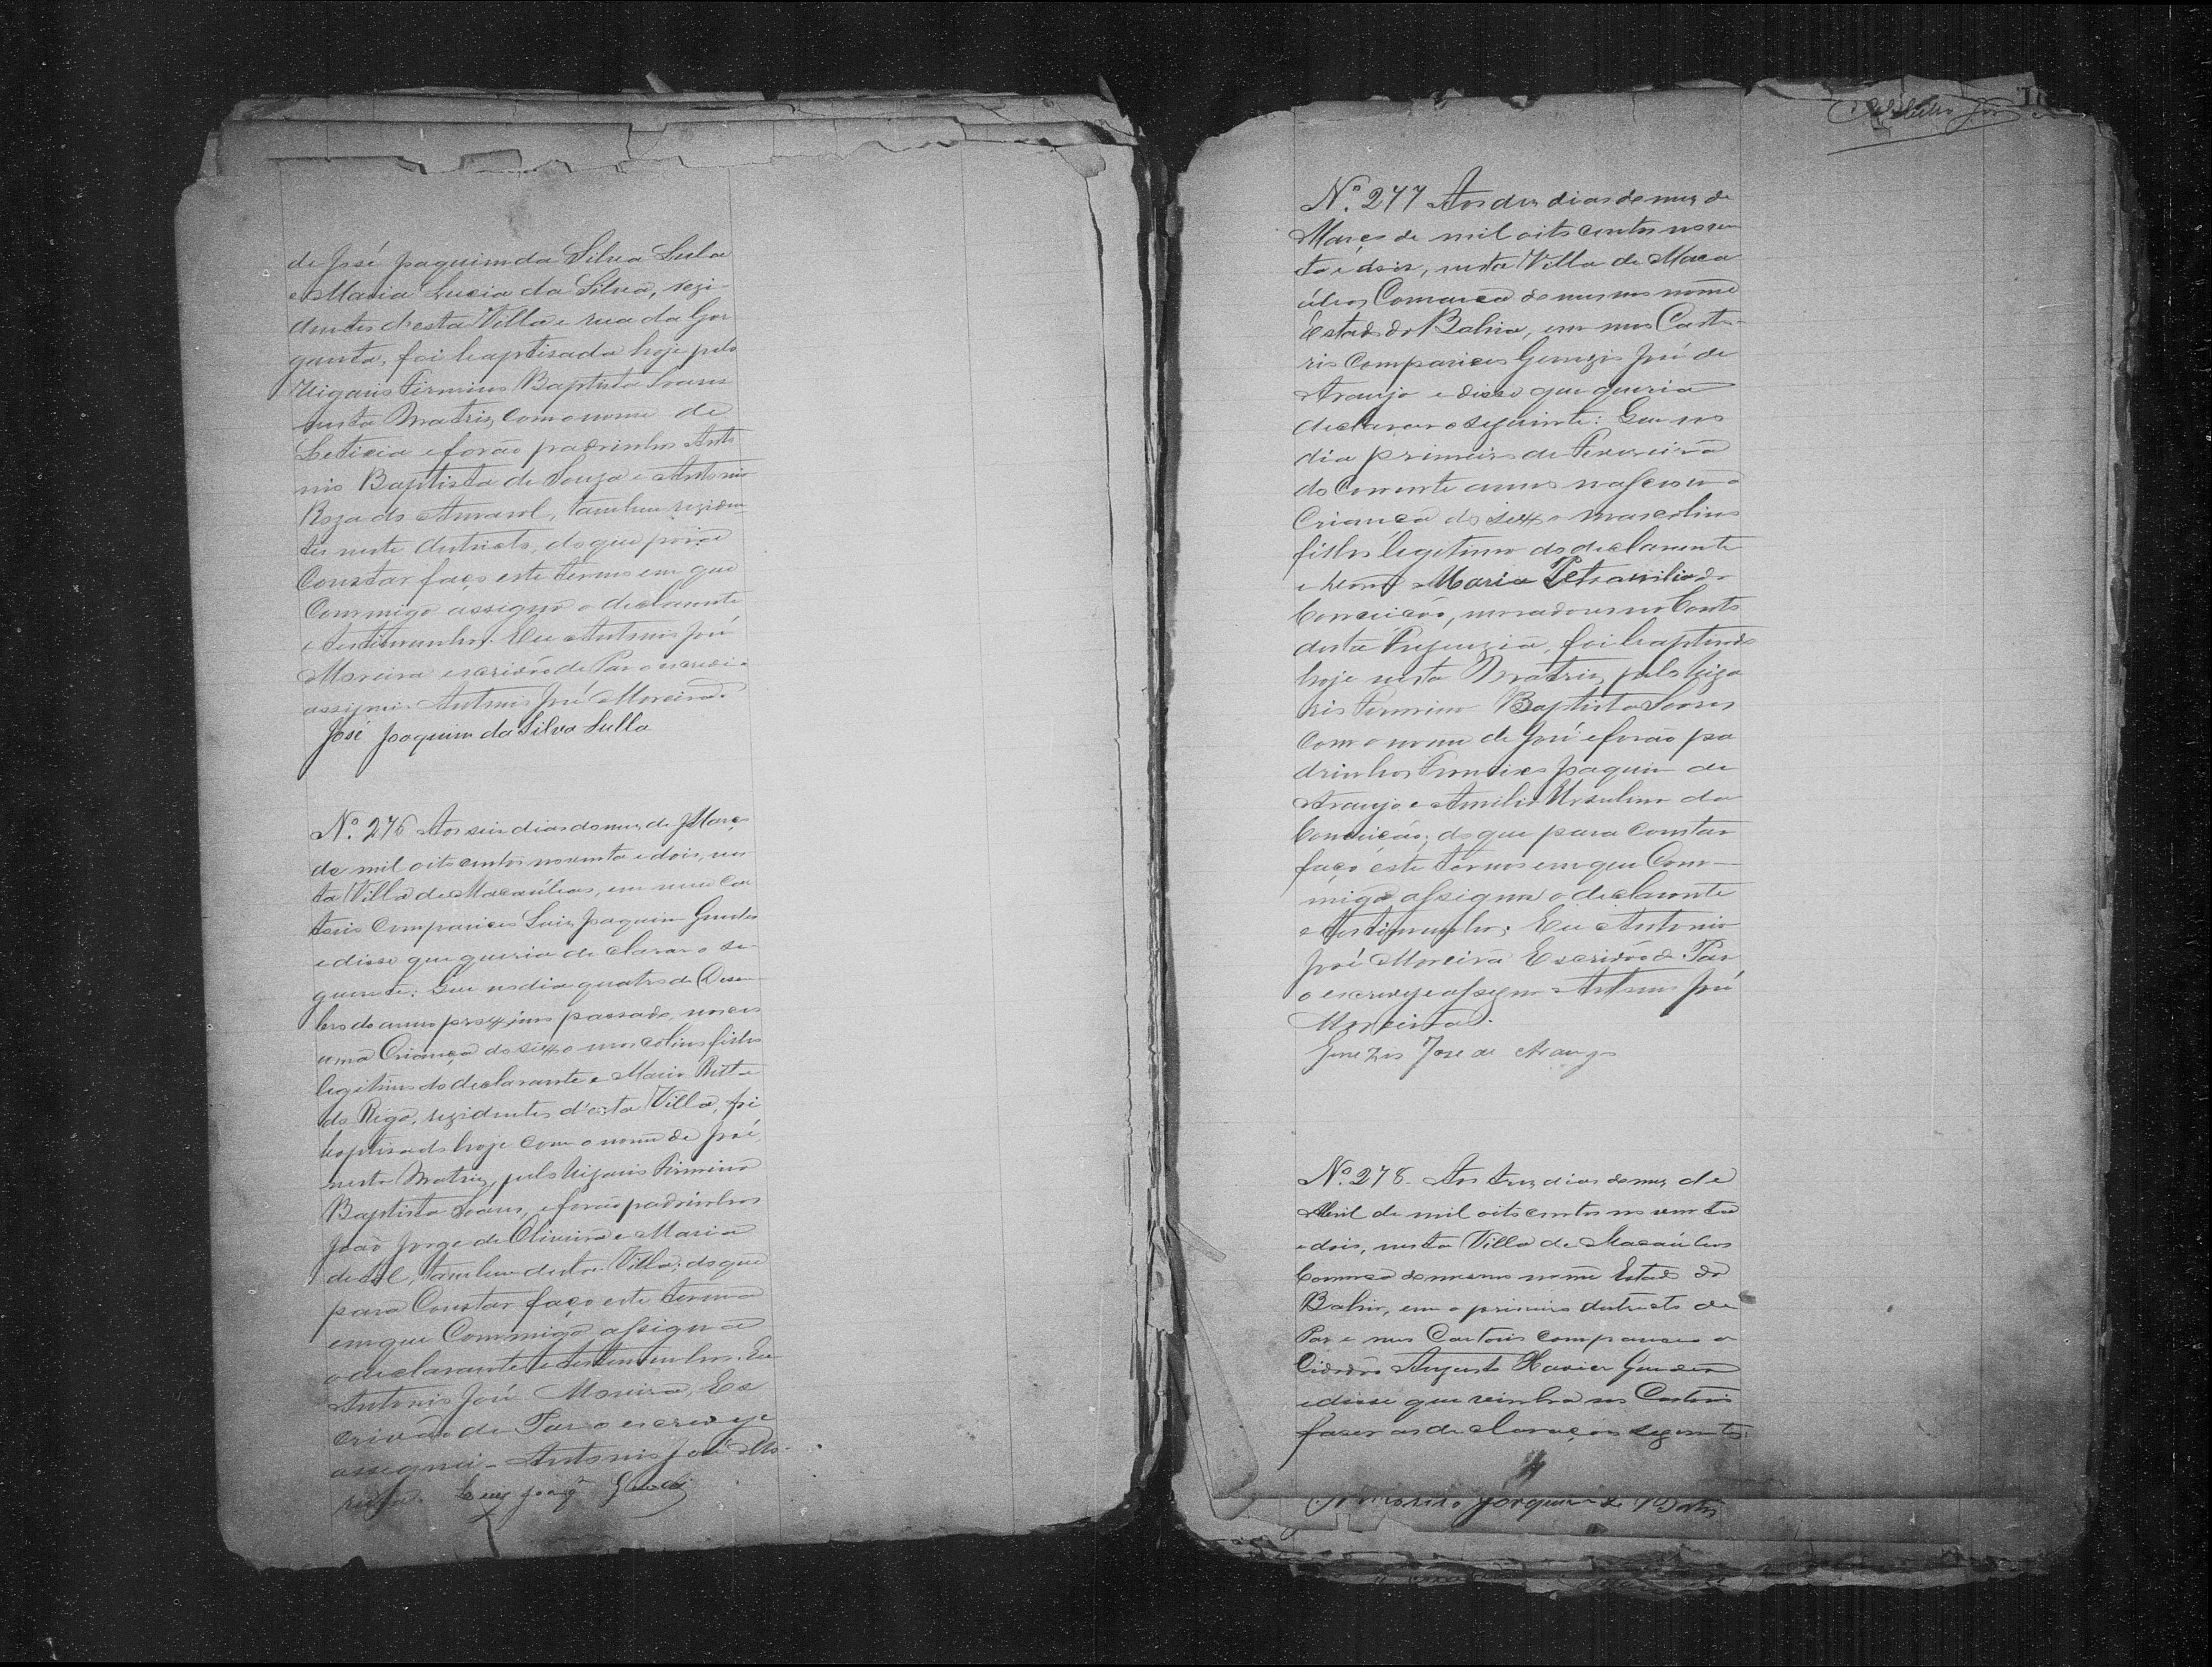 de José Joaquim da Silva Sula
e Maria Lucia da Silva, rezi-
dentes d'esta Villa e rua da Gar
ganta, foi baptisada hoje pelo
Vigario Firmino Baptista Soares
nesta Matriz, com o nome de
Leticia e forão padrinhos Anto
nio Baptista de Souza e Antonia
Roza do Amaral, tambem reziden
tes neste districto, do que para
Constar faço este termo em que
Commigo assigna o declarante
e testimunhas. Eu Antonio José
Moreira escrivão de Paz o escrevi e
assignei. Antonio José Moreira.
José Joaquim da Silva Sulla
Nº. 276 Aos seis dias do mez de Março
de mil oito centos noventa e dois, nes
ta Villa de Macaúbas, em meu Car
torio Compareceu Luiz Joaquim Guedes
e disse que queria declarar o se-
guinte: Que no dia quatro de Desem
bro do anno proximo passado, nasceu
uma Criança do sexo mascolino filho
legitimo do declarante e Maria Ritta
do Rego, rezidentes d'esta Villa, foi
baptisado hoje com o nome de José,
nesta Matriz, pelo Vigario Firmino
Baptista Soares, e forão padrinhos
João Jorge de Oliveira e Maria
de tal, tambem desta Villa; do que
para Constar faço este termo
em que Commigo assigna
o declarante e testemunhas. Eu
Antonio José Moreira, Es
crivão de Paz o escrevy e
assignei - Antonio José Mo-
reira. Luiz Joaqm Guedes
Nº. 277 Aos dez dias do mez de
Março de mil oito centos noven
ta e dois, nesta Villa de Maca
úbas Comarca do mesmo nome
Estado da Bahia, em meo Carto-
rio Compareceo Genezio José de
Araujo e disse que queria
declarar o seguinte: Que no
dia primeiro de Fevereiro
do Corrente anno nasceu a
Criança do sexo mascolino
filho legitimo do declarante
e Maria Petronilia da
Conceição, moradores no Canto
desta Freguezia, foi baptisado
hoje nesta Matriz, pelo Viga
rio Firmino Baptista Soares
Com o nome de José e forão pa
drinhos Joaquim de
Araujo e Amilia Ursulina da
Conceição; do que para Constar
faço este termo em que Com-
migo assigna o declarante
e testimunhas: Eu Antonio
José Moreira Escrivão de Paz
o escrevy e assigno Antonio José
Moreira.
Genezio Jose de Araujo
Nº. 278. Aos trez dias do mez de
Abril de mil oito centos noventa
e dois, nesta Villa de Macaúbas
Comarca do mesmo nome Estado da
Bahia, em o primeiro districto de
Paz e meo Cartorio compareceo o
Cidadão Augusto Xavier
e disse que vinha no Cartorio
fazer as declarações seguintes:
Joaquim de